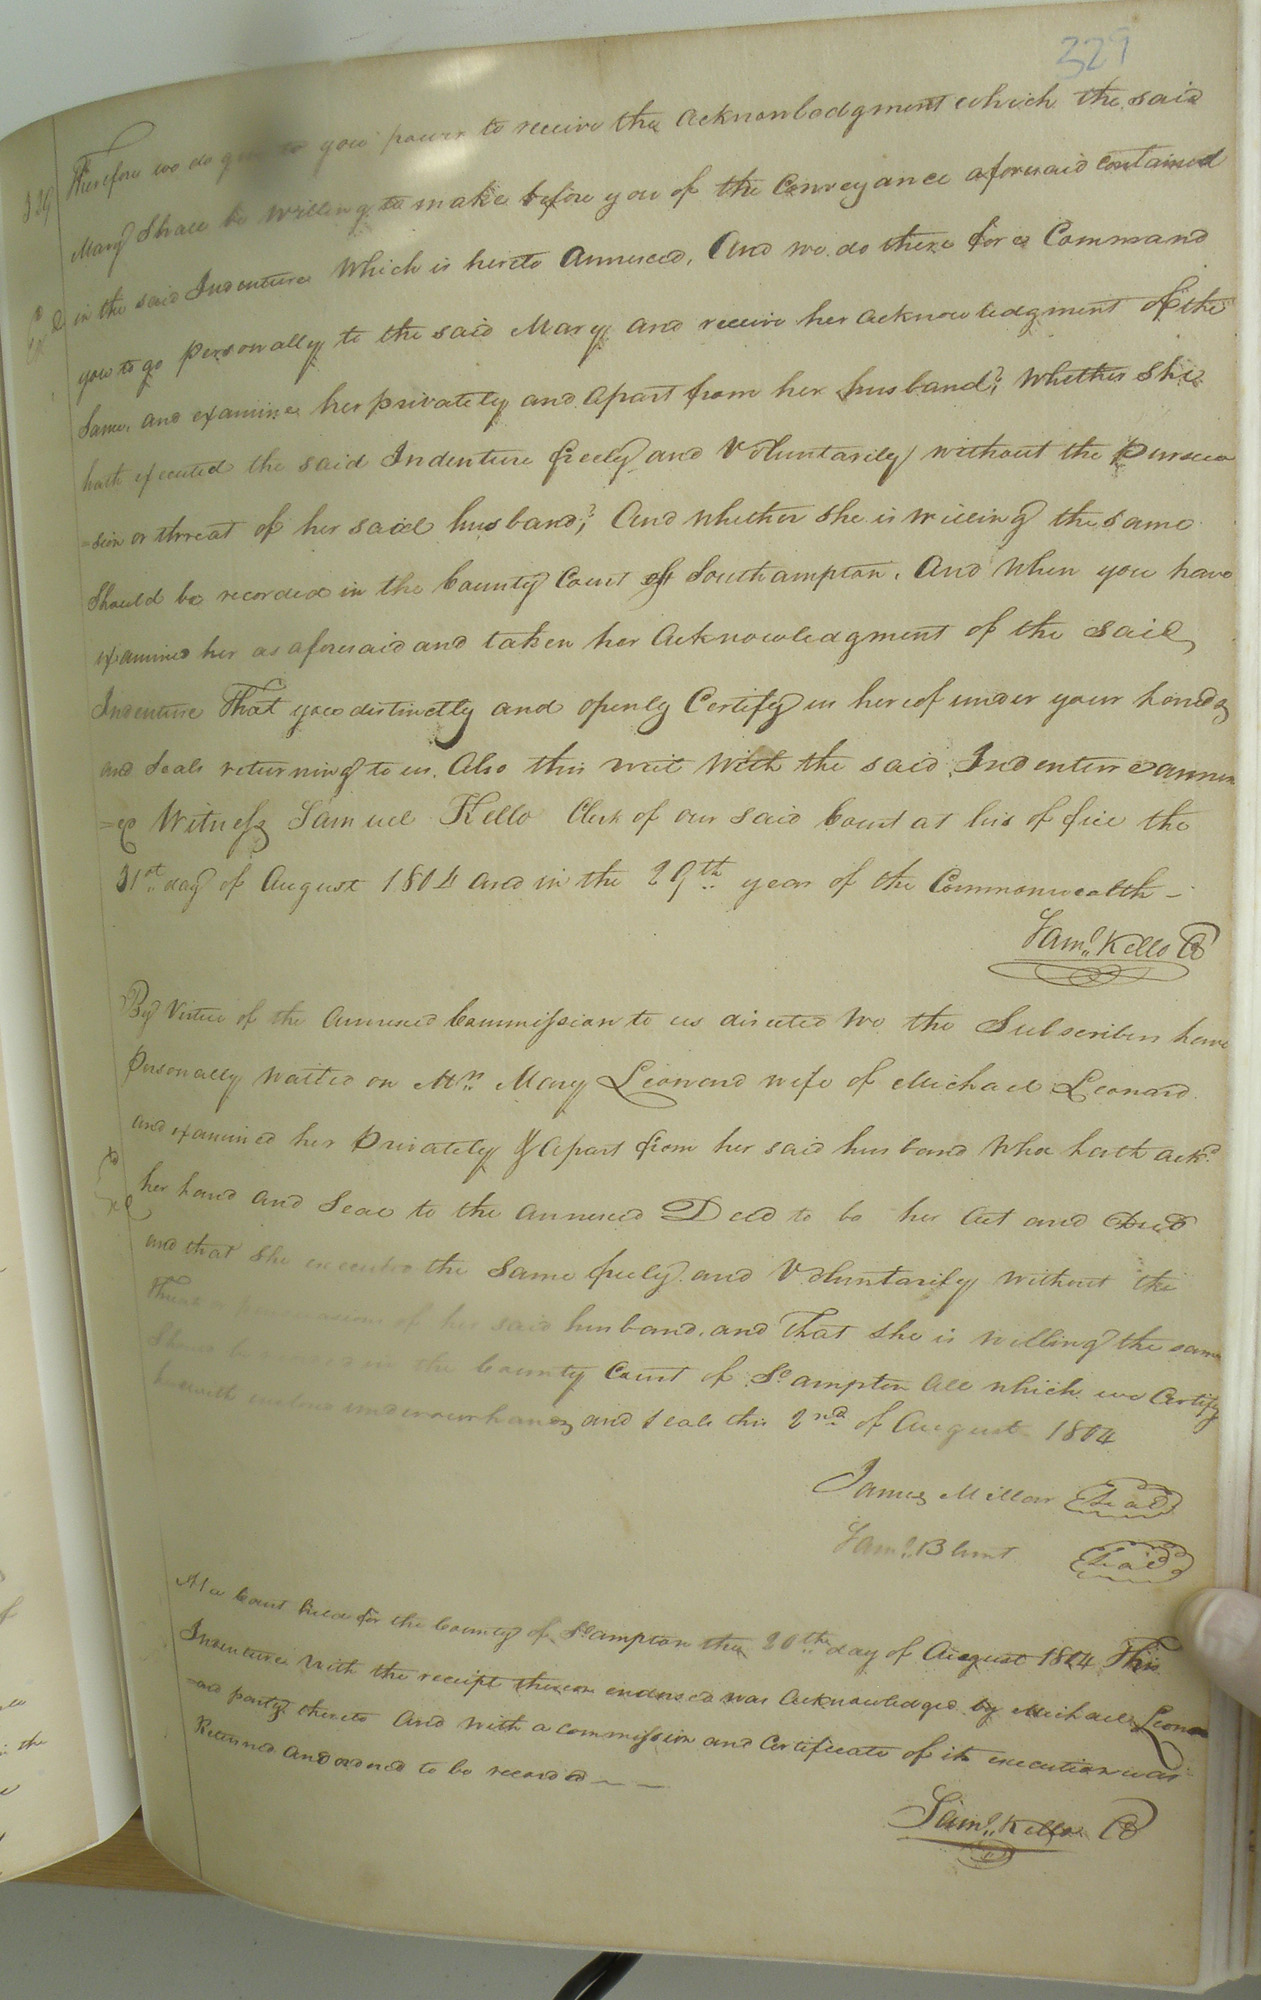 329
329
Therefore we do give to you power to receive the acknowledgment which the said
Mary Shall be willing to make before you of the Conveyance aforesaid contained
in the said Indenture Which is hereto annexed, And we do there fore Command
you to go personally to the said Mary and receive her acknowledgment of the
Same, and examine her privately and apart from her husband; whether She
hath executed the said Indenture freely and Voluntarily without the Persua
=sion or threat of her said husband; And whether she is willing the same
Should be recorded in the County Court of Southampton. And when you have
examined her as aforesaid and taken her Acknowledgment of the said
Indenture That you distinctly and openly Certify us hereof under your hands
and Seals returning to us. Also this writ With the said Indenture annex
=ed Witness Samuel Kello Clerk of our said Court at his office the
31st day of August 1804 and in the 29th year of the Commonwealth —
Saml. Kello Cl
By Virtue of the annexed Commission to us directed We the Subscribers have
personally waited on Mrs. Mary Leonard wife of Michael Leonard
and examined her Privately & Apart from her said husband who hath ackd.
her hand and Seal to the annexed Deed to be her Act and Deed
and that She executed the Same freely and Voluntarily without the
Threat persuasion of her said husband. and That she is willing the same
Should be recorded in the County Court of So.ampton All which we Certify
herewith under our hands and seals this 2nd of August 1804
James Millar Seal
Saml. Blunt Seal
At a Court held for the County of So.ampton the 20th day of August 1804 This
Indenture with the receipt thereon endorsed was Acknowledged by Michael Leonar
=ard party thereto And with a commission and Certificate of its execution was
Returned and ordered to be recorded — —
Saml. Kello Cl